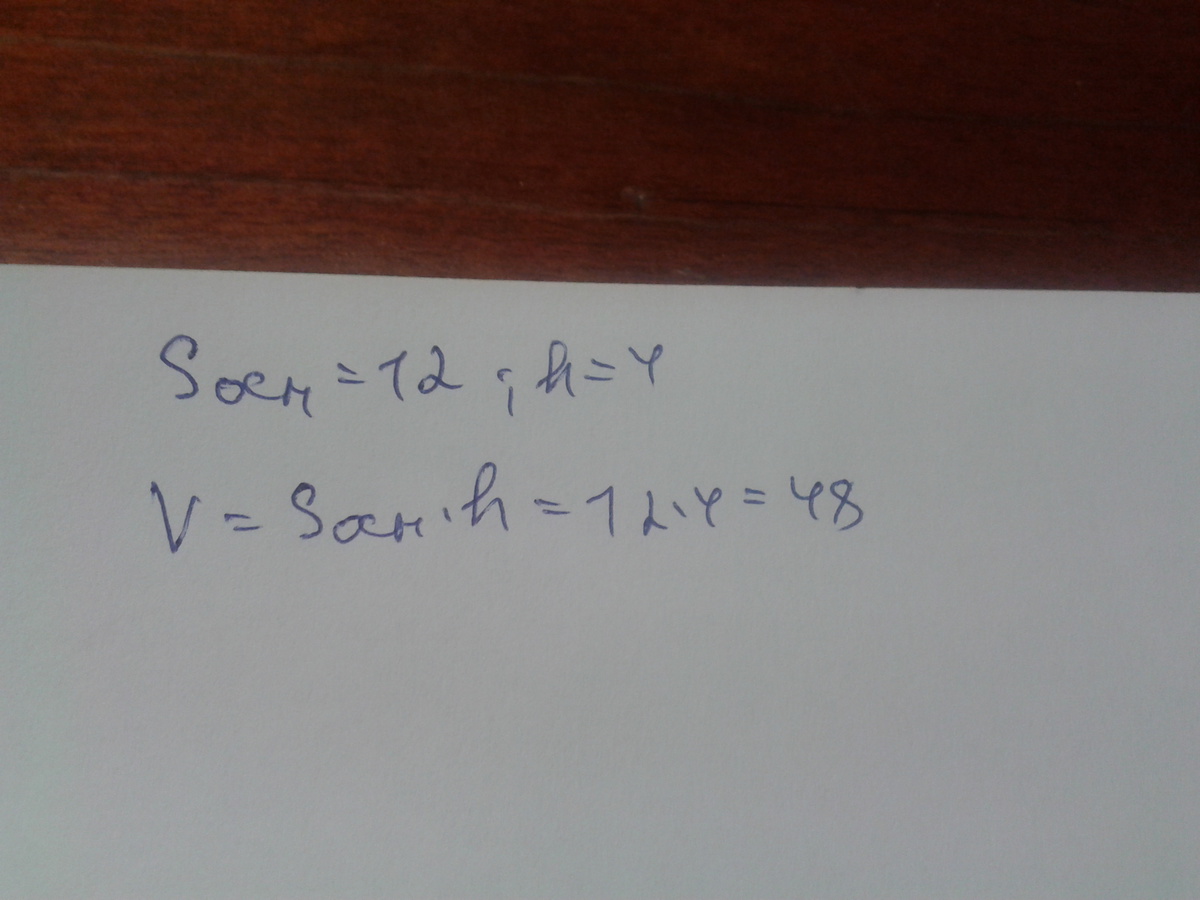 Sосн = 12 ; h = 4
V = Sосн · h = 12 · 4 = 48